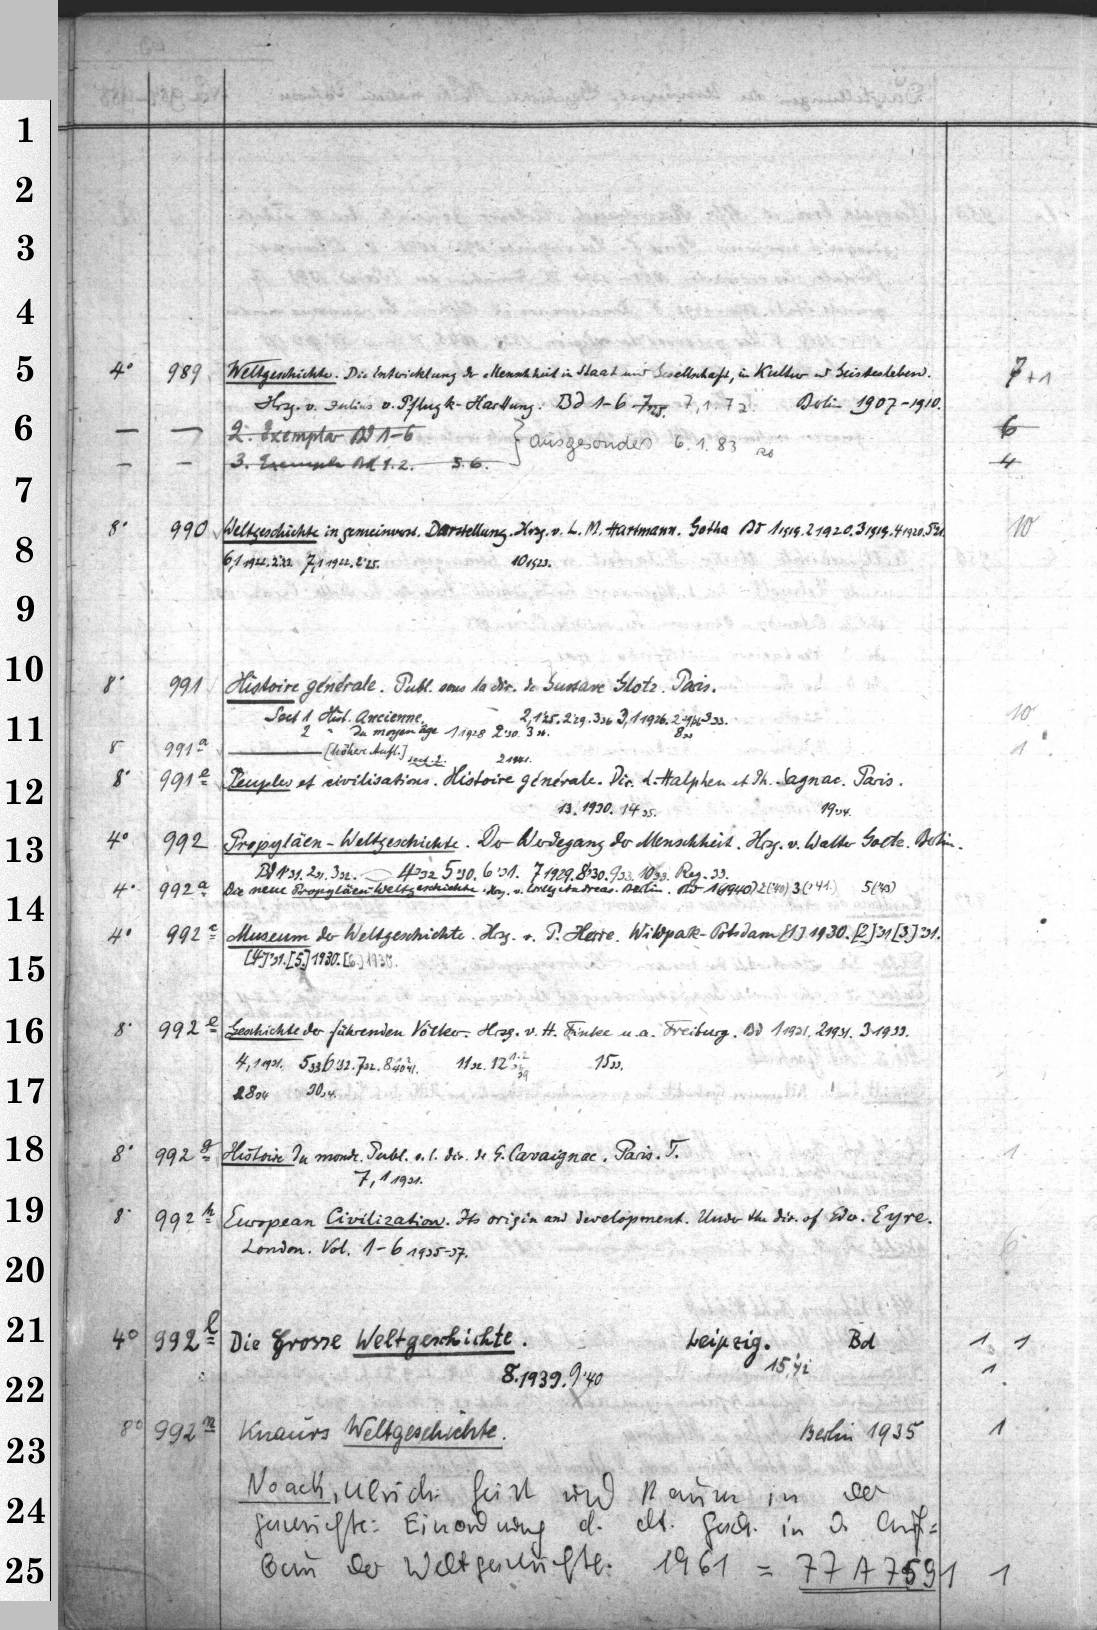 1
2
3
4
5
4° 989 Weltgeschichte. Die Entwicklung der Menschheit in Staat und Gesellschaft, in Kultur u Geistesleben. 7+1
Hrsg. v. Julius v. Pflugk-Harttung. Bd 1-6 7, 1. 72 Berlin 1907-1910.
6
— — 2. Exemplar Bd 1-6 ausgesondert 6.1.83 6
— — 3. Exemplar Bd 1.2. 5.6. 4
7
8° 990 Weltgeschichte in gemeinverst. Darstellung. Hrsg. v. L. M. Hartmann. Gotha Bd 1 1919. 2 1920. 3 1919. 4 1920. 10
8
6,1 1922. 7,1 1922. 10 1923.
9
10
8° 991 Histoire générale. Publ. sous la dir. de Gustave Glotz. Paris.
11
Sect 1 Hist. Ancienne. 2,1'25. 2'29. 3 36 3,1 1926. 10
2 " du moyen âge 1 1928 2'30.
8° 991a ——— [höhere Aufl.] 1
12
8° 991e Peuples et civilisations. Histoire générale. Dir. L. Halphen et Ph. Sagnac. Paris.
13. 1930. 14 35. 19'34.
13
4° 992 Propyläen-Weltgeschichte. Der Werdegang der Menschheit. Hrsg. v. Walter Goetz. Berlin.
Bd 1'31. 2 31. 3 32. 4'32 5'30. 6'31. 7 1929. 8'30. 9 33. 10 33. Reg. 33.
4° 992a Die neue Propyläen-Weltgeschichte. Hrsg. v. Willy Andreas. Berlin. Bd 1 (1940) 2 ('40) 3 ('41.) 5 ('43)
14
4° 992c Museum der Weltgeschichte. Hrsg. v. P. Herre. Wildpark-Potsdam [1] 1930. [2]'31 [3]'31.
[4]'31. [5] 1930. [6.]
15
16
8° 992e Geschichte der führenden Völker. Hrsg. v. H. Finke u. a. Freiburg. Bd 1 1931. 2 1931. 3 1933.
4,1 1931. 5 33 6'32. 7 32. 11 32. 12 15 33.
17
28 34 30 34.
18
8° 992g Histoire du monde. Publ. s. l. dir. de E. Cavaignac. Paris. T. 1
7,1 1931.
19
8° 992h European Civilization. Its origin and development. Under the dir. of Edw. Eyre.
London. Vol. 1-6 1935-37. 6
20
21
4° 992l Die Grosse Weltgeschichte. Leipzig. Bd 1 1
8. 1939. 9'40 15. 1
22
8° 992n Knaurs Weltgeschichte. Berlin 1935 1
23
Noack, Ulrich: Geist und Raum in der
24
Geschichte: Einordnung d. dt. Gesch. in d. Auf=
25
bau der Weltgeschichte. 1961 = 77 A 7591 1